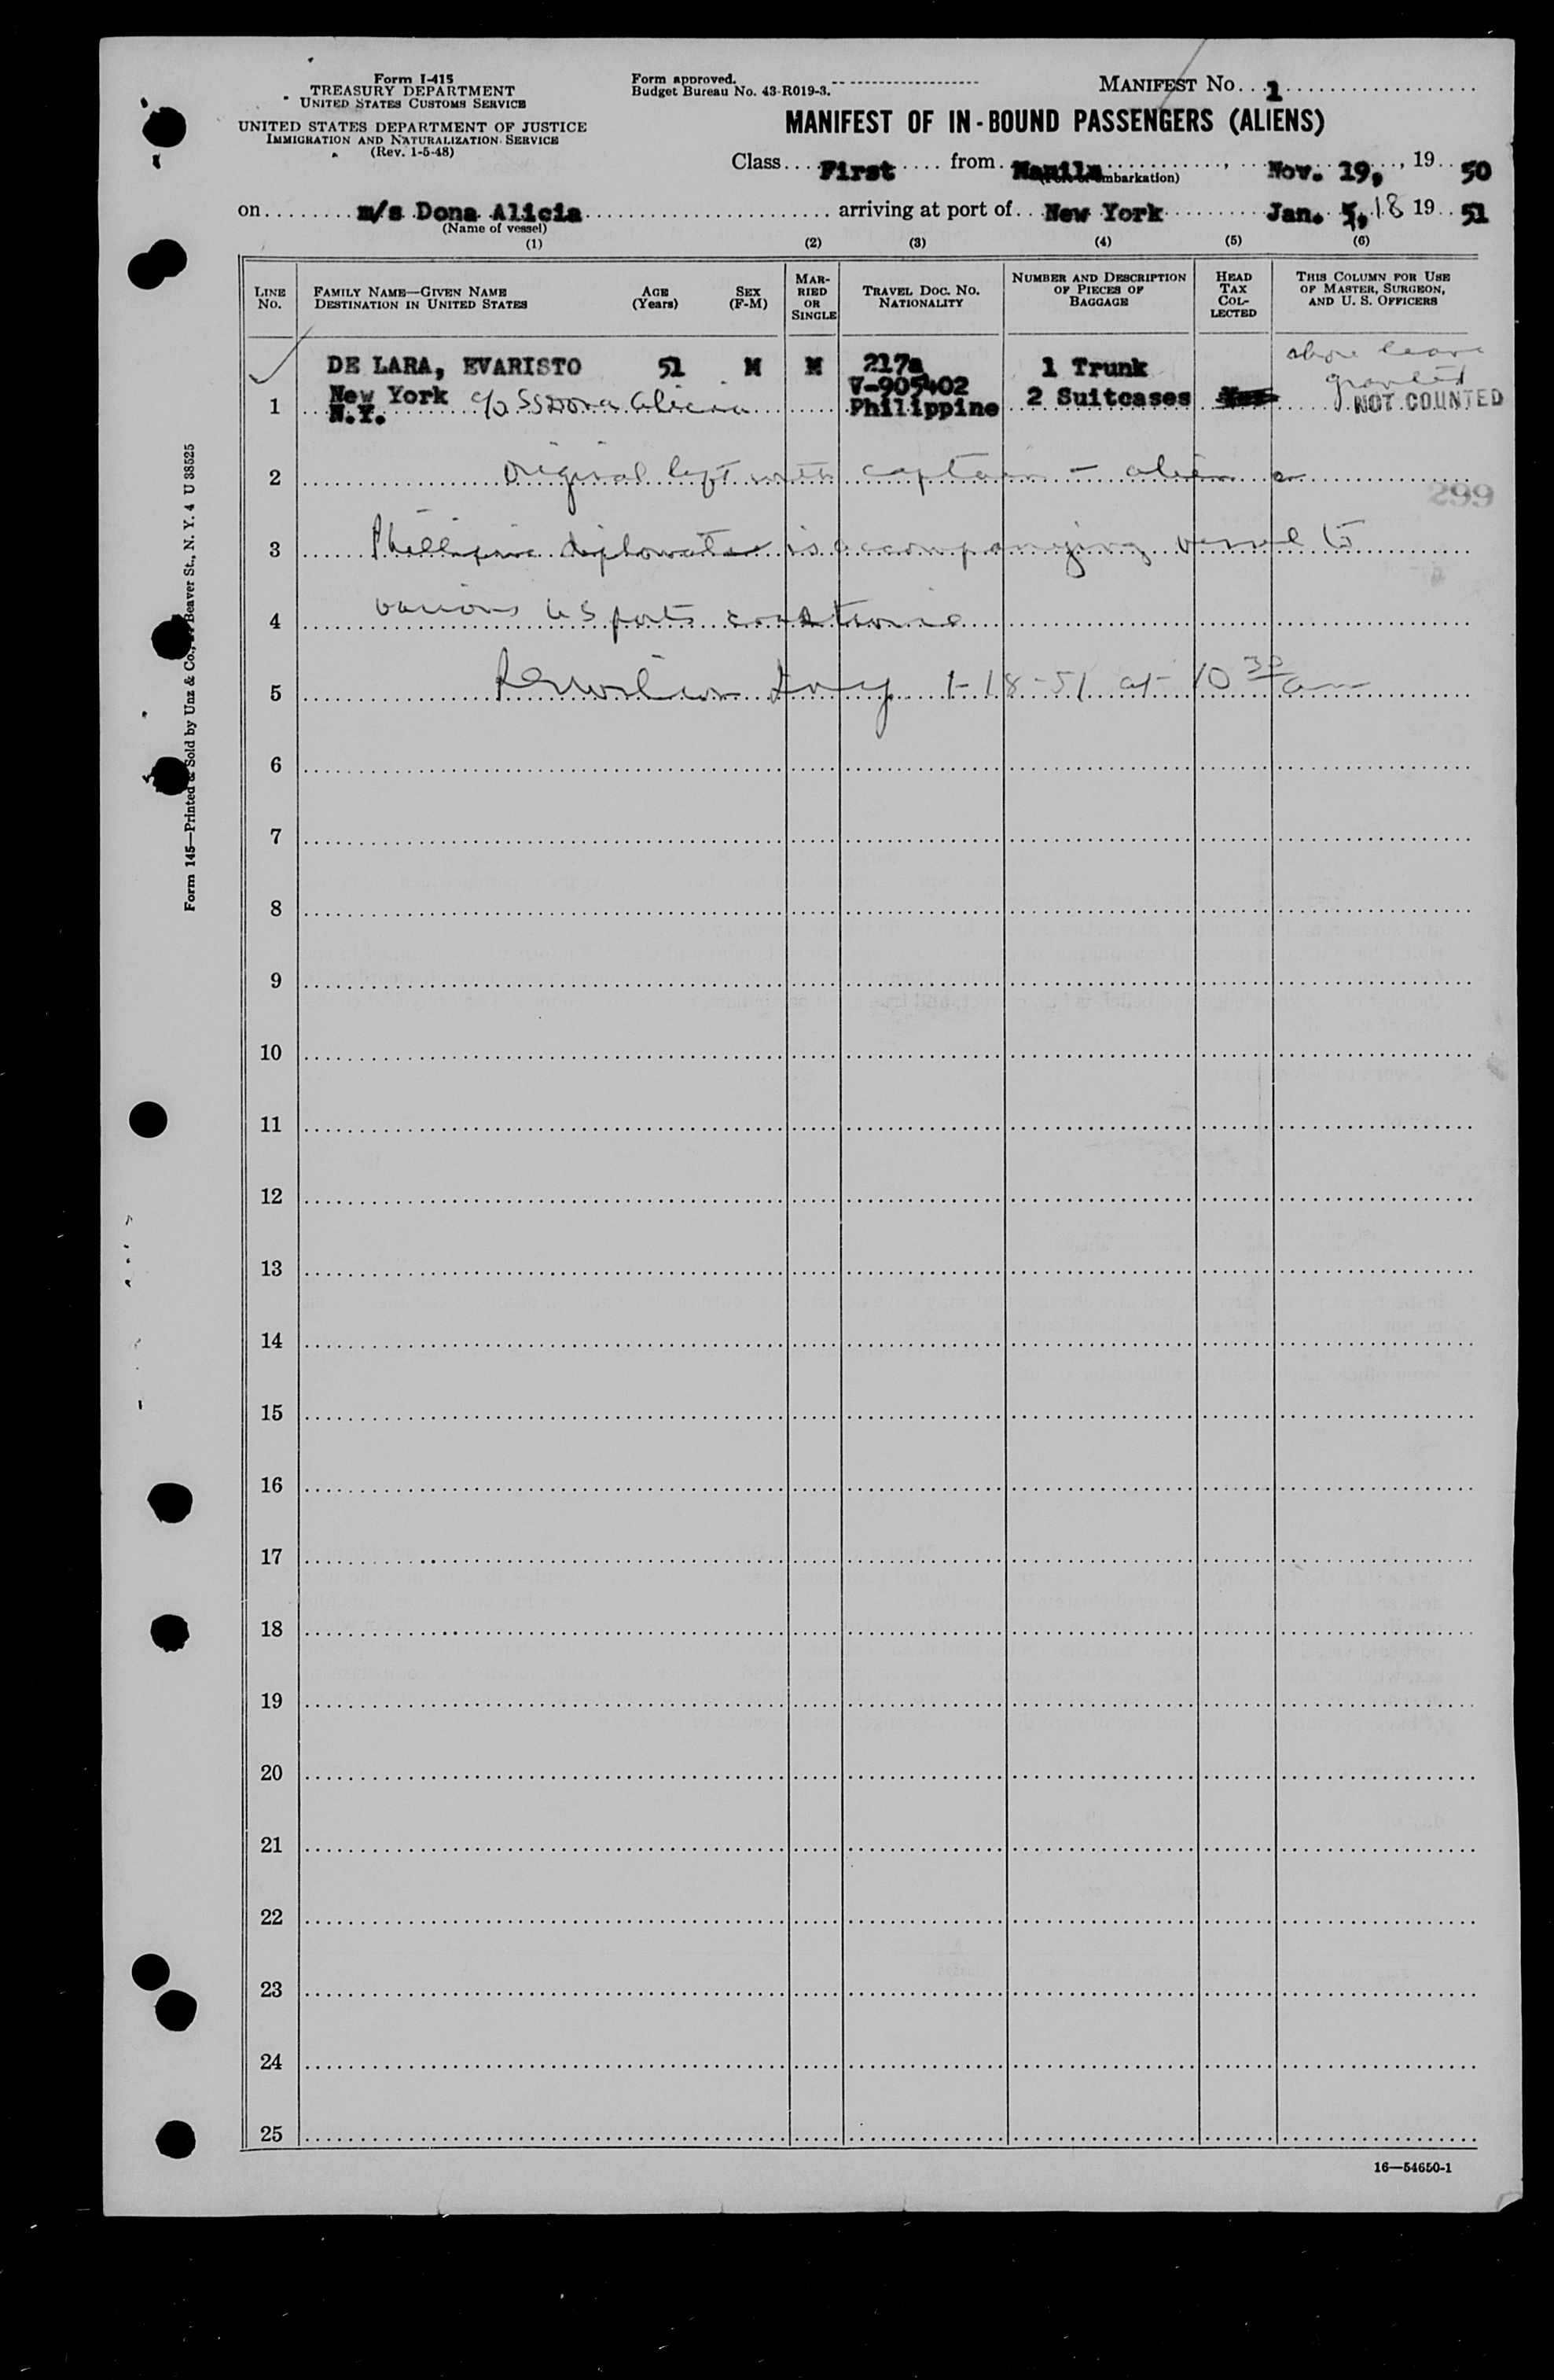 Form I-415
TREASURY DEPARTMENT
UNITED STATES CUSTOMS SERVICE
UNITED STATES DEPARTMENT OF JUSTICE
IMMIGRATION AND NATURALIZATION SERVICE
(Rev. 1-5-48)
Form approved.
Budget Bureau No. 43-R019-3.
MANIFEST No. 1
MANIFEST OF IN-BOUND PASSENGERS (ALIENS)
Class First from Manila, Nov. 19, 19 50
on m/s Dona Alicia arriving at port of New York Jan. 5, 18 19 51
(Name of vessel)
(1) (2) (3) (4) (5) (6)
LINE No.
FAMILY NAME—GIVEN NAME
DESTINATION IN UNITED STATES
AGE (Years)
SEX (F-M)
MARRIED OR SINGLE
TRAVEL DOC. NO.
NATIONALITY
NUMBER AND DESCRIPTION OF PIECES OF BAGGAGE
HEAD TAX COLLECTED
THIS COLUMN FOR USE OF MASTER, SURGEON, AND U. S. OFFICERS
DE LARA, EVARISTO 51 M M 217a 1 Trunk shore leave
V-905402 granted
1 New York c/o SS Dona Alicia Philippine 2 Suitcases NOT COUNTED
N.Y.
2 Original left with captain - alien a
299
3 Phillipine diplomat is accompanying vessel to
4 various US ports coastwise
5 1-18-51 at 10 30 am
6
7
8
9
10
11
12
13
14
15
16
17
18
19
20
21
22
23
24
25
16—54650-1
Form 145—Printed & Sold by Unz & Co., Beaver St., N. Y. 4 U 38525